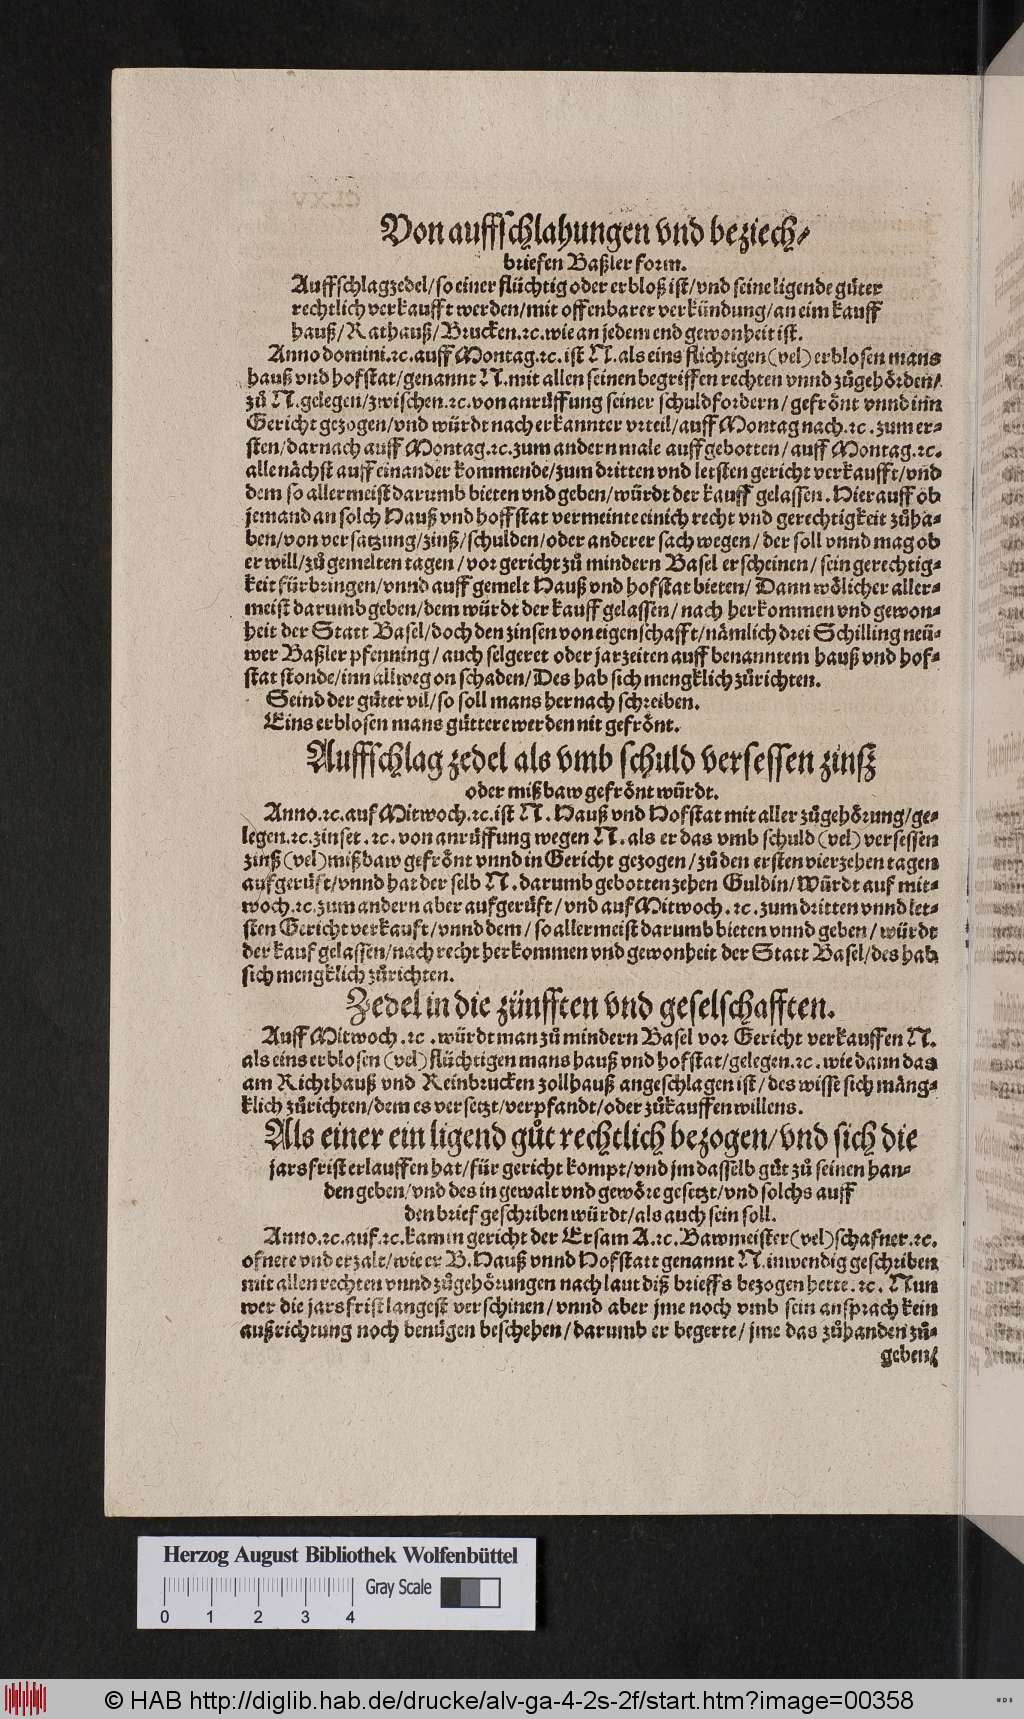 Von auffschlahungen vnd beziech-
briefen Baßler form.
Auffschlagzedel/so einer flüchtig oder erbloß ist/vnd seine ligende gůter
rechtlich verkaufft werden/mit offenbarer verkündung/an eim kauff
hauß/Rathauß/Brucken.ꝛc.wie an jedem end gewonheit ist.
Anno domini.ꝛc.auff Montag.ꝛc.ist N.als eins flichtigen(vel)erblosen mans
hauß vnd hofstat/genannt N.mit allen seinen begriffen rechten vnnd zůgehörden/
zů N.gelegen/zwischen.ꝛc.von anrůffung seiner schuldfordern/gefrönt vnnd inn
Gericht gezogen/vnd würdt nach erkannter vrteil/auff Montag nach.ꝛc.zum er-
sten/darnach auff Montag.ꝛc.zum andern male auffgebotten/auff Montag.ꝛc.
alle nächst auff einander kommende/zum dritten vnd letsten gericht verkaufft/vnd
dem so allermeist darumb bieten vnd geben/würdt der kauff gelassen.Hierauff ob
jemand an solch Hauß vnd hoffstat vermeinte einich recht vnd gerechtigkeit zůha-
ben/von versatzung/zinß/schulden/oder anderer sach wegen/der soll vnnd mag ob
er will/zů gemelten tagen/vor gericht zů mindern Basel erscheinen/sein gerechtig-
keit fürbringen/vnnd auff gemelt Hauß vnd hofstat bieten/Dann wölicher aller-
meist darumb geben/dem würdt der kauff gelassen/nach herkommen vnd gewon-
heit der Statt Basel/doch den zinsen von eigenschafft/nämlich drei Schilling neü-
wer Baßler pfenning/auch selgeret oder jarzeiten auff benanntem hauß vnd hof-
stat stonde/inn allweg on schaden/Des hab sich mengklich zůrichten.
Seind der gůter vil/so soll mans hernach schreiben.
Eins erblosen mans güttere werden nit gefrönt.
Auffschlag zedel als vmb schuld versessen zinß
oder mißbaw gefrönt würdt.
Anno.ꝛc.auf Mitwoch.ꝛc.ist N. Hauß vnd Hofstat mit aller zůgehörung/ge-
legen.ꝛc.zinset.ꝛc.von anrůffung wegen N.als er das vmb schuld(vel)versessen
zinß(vel)mißbaw gefrönt vnnd in Gericht gezogen/zů den ersten vierzehen tagen
aufgerůft/vnnd hat der selb N.darumb gebotten zehen Guldin/Würdt auf mit-
woch.ꝛc.zum andern aber aufgerůft/vnd auf Mitwoch.ꝛc.zum dritten vnnd let-
sten Gericht verkauft/vnnd dem/so allermeist darumb bieten vnnd geben/würdt
der kauf gelassen/nach recht herkommen vnd gewonheit der Statt Basel/des hab
sich mengklich zůrichten.
Zedel in die zünfften vnd geselschafften.
Auff Mitwoch.ꝛc.würdt man zů mindern Basel vor Gericht verkauffen N.
als eins erblosen(vel)flüchtigen mans hauß vnd hofstat/gelegen.ꝛc.wie dann das
am Richthauß vnd Reinbrucken zollhauß angeschlagen ist/des wisse sich mäng-
klich zůrichten/dem es versetzt/verpfandt/oder zůkauffen willens.
Als einer ein ligend gůt rechtlich bezogen/vnd sich die
jarsfrist erlauffen hat/für gericht kompt/vnd jm dasselb gůt zů seinen han-
den geben/vnd des in gewalt vnd gewöre gesetzt/vnd solchs auff
den brief geschriben würdt/als auch sein soll.
Anno.ꝛc.auf.ꝛc.kam in gericht der Ersam A.ꝛc.Bawmeister(vel)schafner.ꝛc.
ofnete vnd erzalt/wie er B.Hauß vnnd Hofstatt genannt N.inwendig geschriben
mit allen rechten vnnd zůgehörungen nach laut diß brieffs bezogen hette.ꝛc.Nun
wer die jarsfrist langest verschinen/vnnd aber jme noch vmb sein ansprach kein
außrichtung noch benügen beschehen/darumb er begerte/jme das zůhanden zů-
geben/
Herzog August Bibliothek Wolfenbüttel
Gray Scale
0 1 2 3 4
© HAB http://diglib.hab.de/drucke/alv-ga-4-2s-2f/start.htm?image=00358